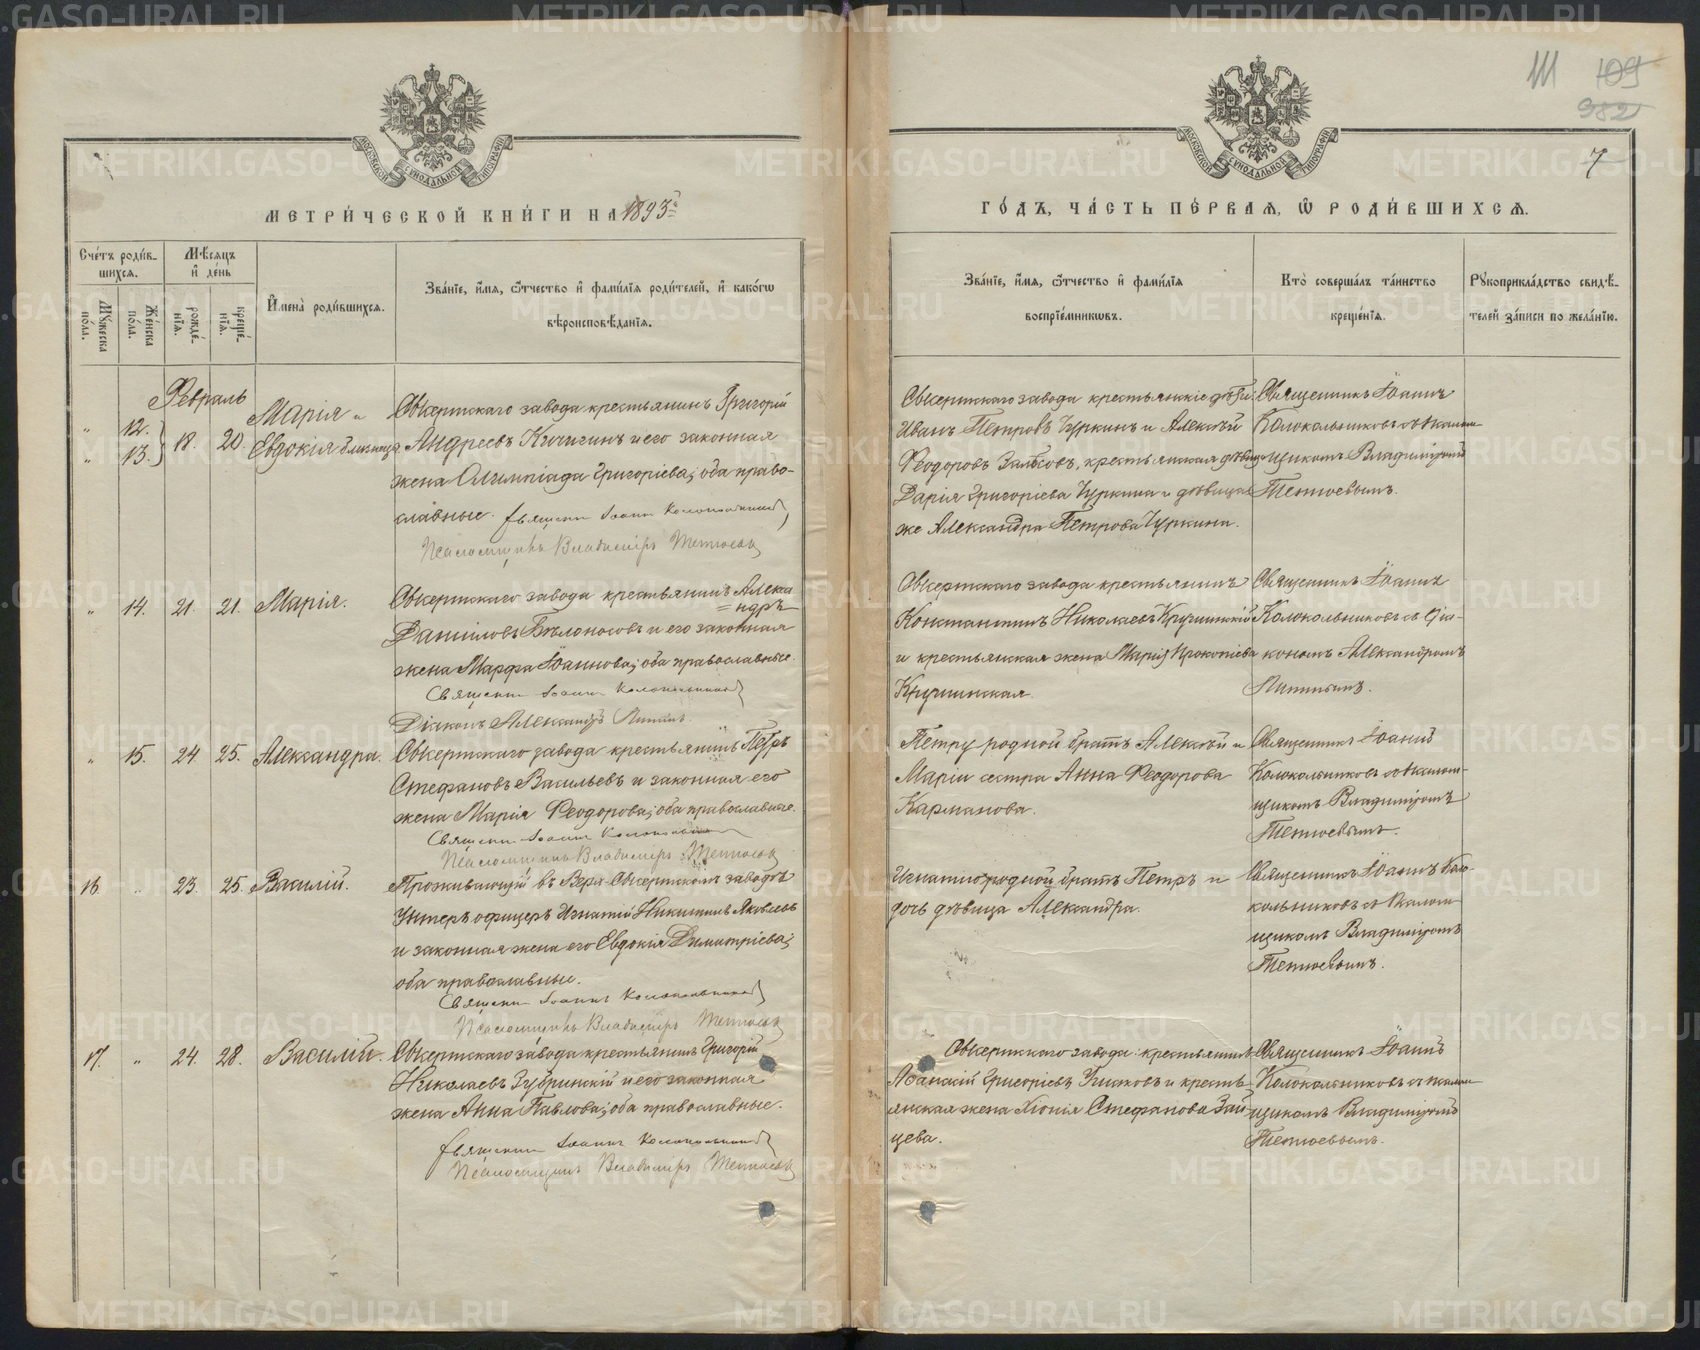 METRIKI.GASO-URAL.RU
МОСКОВСКОЙ СУНОДАЛЬНОЙ ТИПОГРАФІИ
МОСКОВСКОЙ СУНОДАЛЬНОЙ ТИПОГРАФІИ
111 109
382
7
МЕТРИ́ЧЕСКОЙ КНИ́ГИ НА 1893 г.
ГО́ДЪ, ЧА́СТЬ ПЕ́РВАЯ, Ѿ РОДИ́ВШИХСЯ.
Сче́тъ роди́в-
шихся.
Мѣ́сяцъ
и҆ де́нь
Му́жеска
по́ла.
Же́нска
по́ла.
рожде́-
нїя.
креще́-
нїя.
И҆мена̀ роди́вшихся.
Зва́нїе, и҆́мя, ѻ҆́тчество и҆ фами́лїя роди́телей, и҆ како́гѡ
вѣроисповѣ́данїя.
Зва́нїе, и҆́мя, ѻ҆́тчество и҆ фами́лїя
воспрїе́мникѡвъ.
Кто̀ соверша́лъ та́инство
креще́нїя.
Рꙋкоприкла́дство свидѣ́-
телей за́писи по жела́нїю.
Февраль
" 12.
" 13.
18. 20.
Марія и
Евдокія близнецы
Сысертскаго завода крестьянинъ Григорій
Андреевъ Кичигинъ и его законная
жена Олимпіада Григорьева; оба право-
славные. Священ. Іоаннъ Колокольниковъ
Псаломщикъ Владиміръ Тетюевъ
Сысертскаго завода крестьянскіе дѣти:
Иванъ Петровъ Чуркинъ и Алексѣй
Феодоровъ, крестьянская дѣвица
Дарія Григорьева Чуркина и дѣвица
же Александра Петрова Чуркина.
Священникъ Іоаннъ
Колокольниковъ съ псалом-
щикомъ Владиміромъ
Тетюевымъ.
" 14. 21. 21. Марія.
Сысертскаго завода крестьянинъ Алекса
ндръ
Даниловъ Бѣлоносовъ и его законная
жена Марфа Іоаннова; оба православные.
Священ. Іоаннъ Колокольниковъ
Діаконъ Александръ
Сысертскаго завода крестьянинъ
Константинъ Николаевъ Кручинскій
и крестьянская жена Марія Прокопіева
Кручинская.
Священникъ Іоаннъ
Колокольниковъ съ Діа-
кономъ Александромъ
" 15. 24 25. Александра.
Сысертскаго завода крестьянинъ Петръ
Стефановъ Васильевъ и законная его
жена Марія Феодорова; оба православные.
Священ. Іоаннъ Колокольниковъ
Псаломщикъ Владиміръ Тетюевъ
Петру родной братъ Алексѣй и
Маріи сестра Анна Феодорова
Карманова.
Священникъ Іоаннъ
Колокольниковъ съ псалом-
щикомъ Владиміромъ
Тетюевымъ.
16. " 23. 25. Василій.
Проживающій въ Верх-Сысертскомъ заводѣ
Унтеръ офицеръ Игнатій Никитинъ Яковлевъ
и законная жена его Евдокія Димитріева;
оба православные.
Священ. Іоаннъ Колокольниковъ
Псаломщикъ Владиміръ Тетюевъ
Игнатію родной братъ Петръ и
дочь дѣвица Александра.
Священникъ Іоаннъ Коло-
кольниковъ съ Псалом-
щикомъ Владиміромъ
Тетюевымъ.
17. " 24. 28. Василій.
Сысертскаго завода крестьянинъ Григорій
Николаевъ Зубринскій и его законная
жена Анна Павлова; оба православные.
Священ. Іоаннъ Колокольниковъ
Псаломщикъ Владиміръ Тетюевъ
Сысертскаго завода: крестьянинъ
Аѳанасій Григорьевъ и кресть-
янская жена Хіонія Стефанова Зай-
цева.
Священникъ Іоаннъ
Колокольниковъ съ псалом-
щикомъ Владиміромъ
Тетюевымъ.